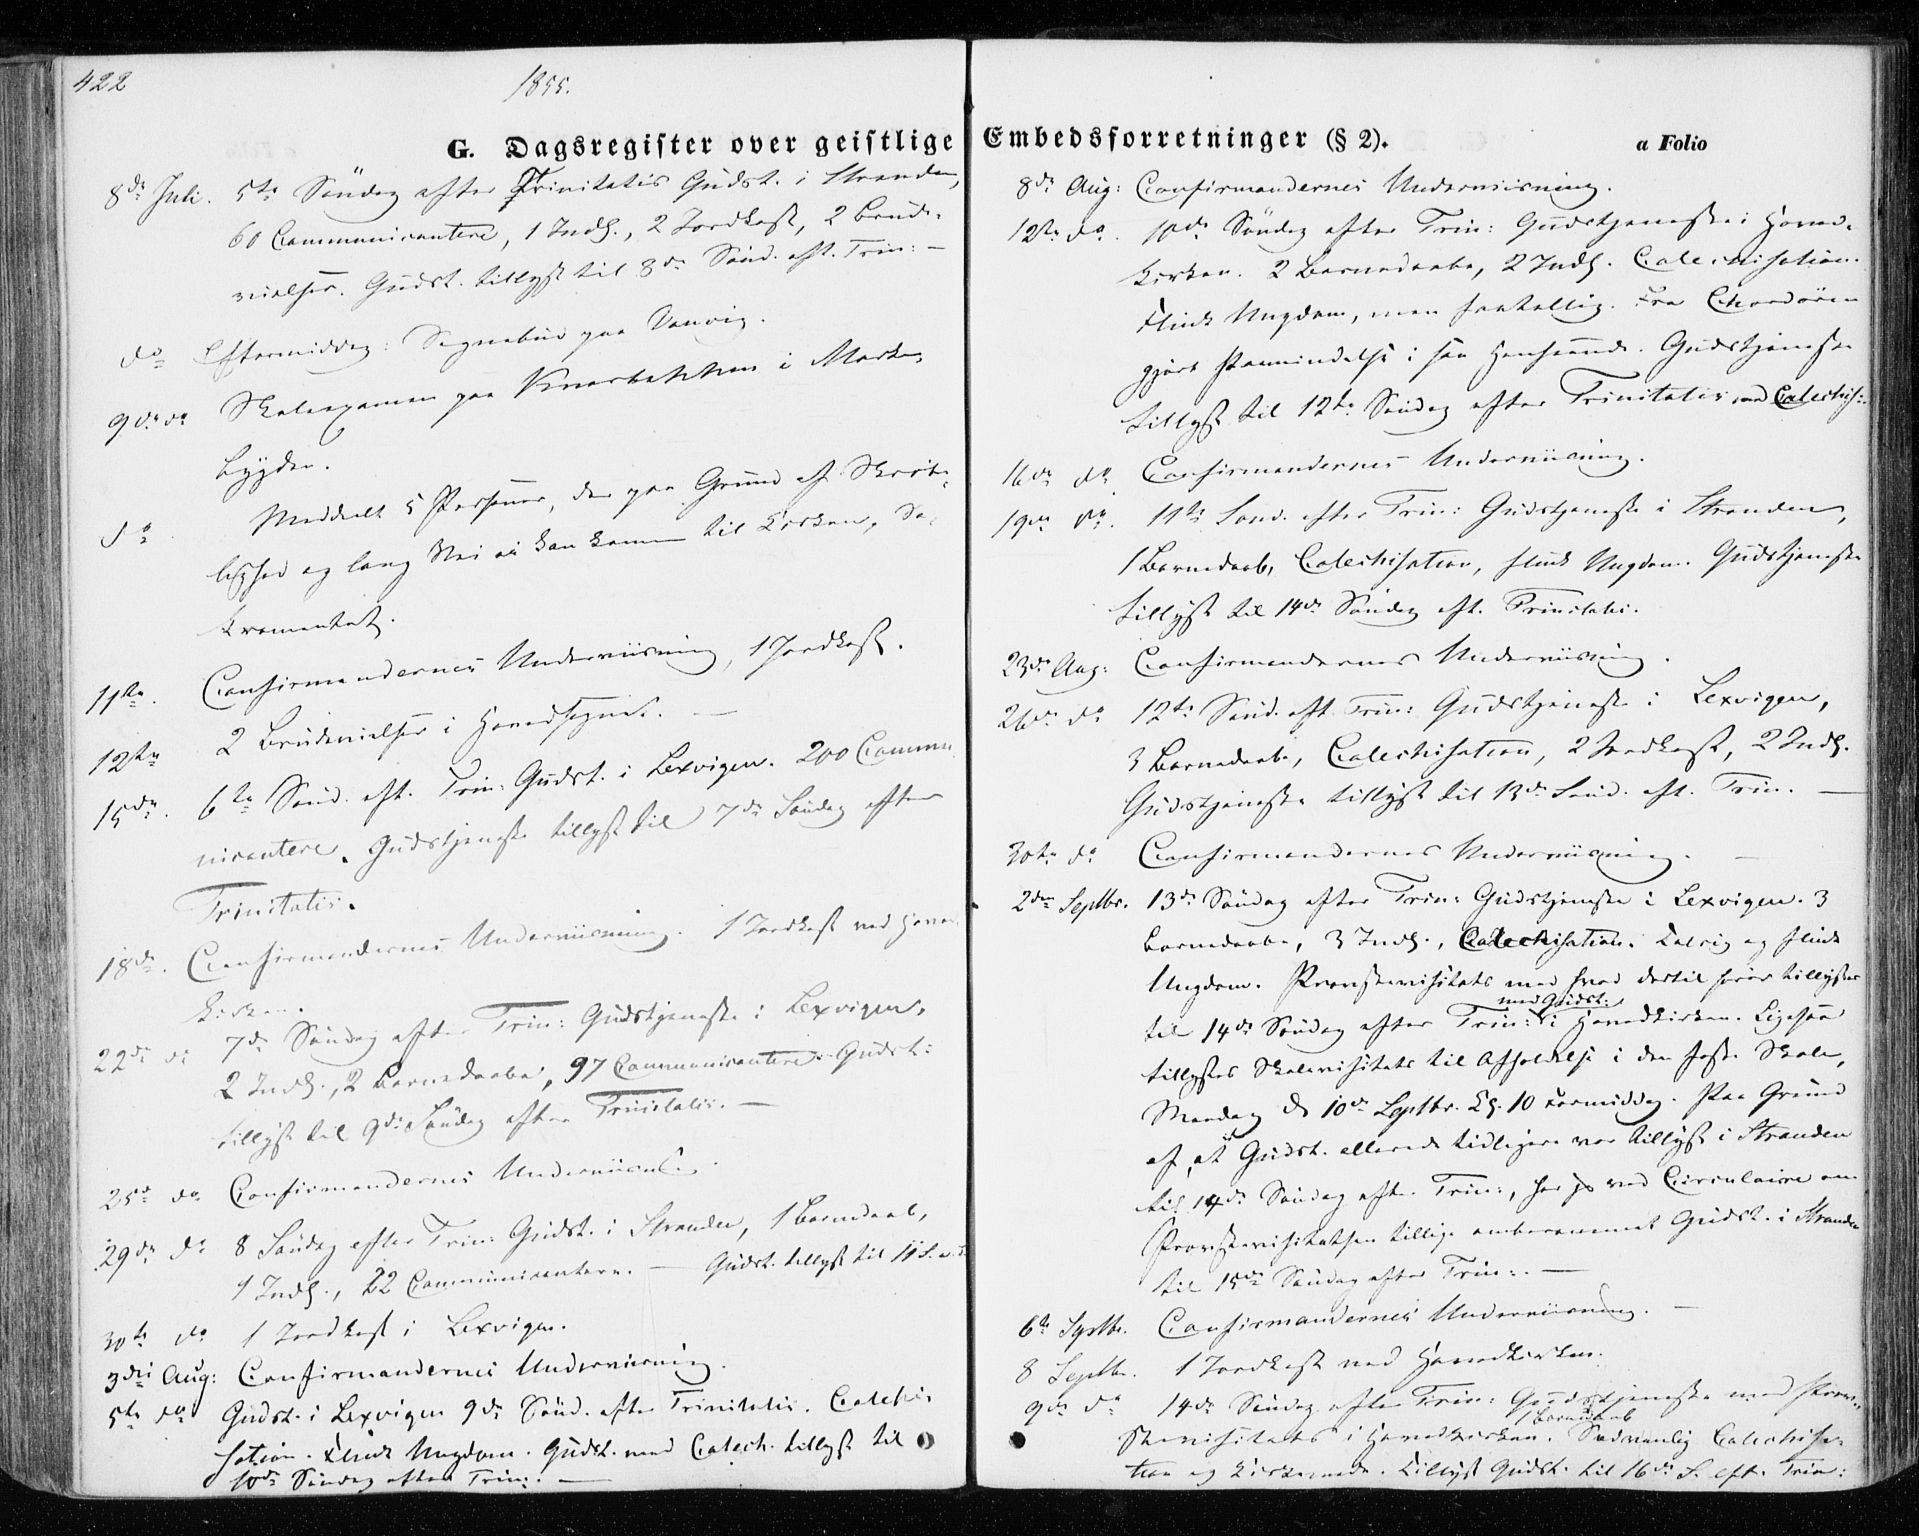 422
1855.
G. Dagsregister over geistlige Embedsforretninger (§ 2).
a Folio
8de Juli. 5te Söndag efter Trinitatis Gudst. i Stranden,
60 Communicantere, 1 Indl., 2 Jordkast, 2 Brude-
vielser. Gudst. tillyst til 8de Sönd. eft. Trin: —
do Eftermiddag: Sognebud paa Vanvig.
9de do Skoleexamen paa Knarbakken i Markа-
bygden.
do Meddeelt 5 Personer, der paa Grund af Skrøbe-
lighed og lang Vei ei kan komme til Kirken, Sa-
kramentet.
11te. Confirmandernes Underviisning, 1 Jordkast.
12te 2 Brudevielser i Hovedsognet. —
15de. 6te Sönd. eft. Trin: Gudst. i Lexvigen. 200 Commu
nicantere. Gudstjeneste tillyst til 7de Söndag efter
Trinitatis.
18de. Confirmandernes Underviisning. 1 Jordkast ved Hoved
kirken.
22de do 7de Söndag efter Trin: Gudstjeneste i Lexvigen,
2 Indl., 2 Barnedaabe, 97 Communicantere. Gudst:
tillyst til 9de Söndag efter Trinitatis. —
25de do Confirmandernes Underviisning.
29de do 8 Söndag efter Trin: Gudst. i Stranden, 1 Barnedaab,
1 Indl., 22 Communicantere. — Gudst. tillyst til 11 S.
30te do 1 Jordkast i Lexvigen.
3die Aug: Confirmandernes Underviisning.
5te do Gudst. i Lexvigen 9de Sönd. efter Trinitatis. Catechi-
sation. Flink Ungdom. Gudst. med Catech. tillyst til
10de Söndag efter Trin: —
8de Aug: Confirmandernes Underviisning.
12te do. 10de Söndag efter Trin: Gudstjeneste i Hoved-
kirken. 2 Barnedaabe, 2 Indl. Catechisation.
Flink Ungdom, men faatallig. Fra Chordören
gjort Paamindelse i saa Henseende. Gudstjeneste
tillyst til 12te Söndag efter Trinitatis med Catechis:
16de do. Confirmandernes Underviisning.
19de do. 11te Sönd. efter Trin: Gudstjeneste i Stranden,
1 Barnedaab, Catechisation, flink Ungdom. Gudstjeneste
tillyst til 14de Söndag eft. Trinitatis.
23de Aug: Confirmandernes Underviisning.
26de do 12te Sönd. eft. Trin: Gudstjeneste i Lexvigen,
3 Barnedaabe, Catechisation, 2 Jordkast, 2 Indl.
Gudstjeneste tillyst til 13de Sönd. eft. Trin. —
30te do Confirmandernes Underviisning. —
2den Septbr. 13de Söndag efter Trin: Gudstjeneste i Lexvigen. 3
Barnedaabe, 3 Indl., Catechisation. Talrig og flink
Ungdom. Provstevisitats med hvad dertil hører tillystes
med Gudst:
til 14de Söndag efter Trin: i Hovedkirken. Ligesaa
tillystes Skolevisitats til Afholdelse i den faste Skole,
Mandag d. 10de Septbr. Kl. 10 Formiddag. Paa Grund
af, at Gudst. allerede tidligere var tillyst i Stranden
til 14de Söndag efter Trin:, har jeg ved Circulaire om
Provstevisitatsen tillige omberammet Gudst. i Stranden
til 15de Söndag efter Trin: —
6te Septbr. Confirmandernes Underviisning. —
8 Septbr. 1 Jordkast ved Hovedkirken.
9de do 14de Söndag efter Trin: Gudstjeneste med Prov-
1 Barnedaab
stevisitats i Hovedkirken. Sædvanlig Catechisa-
tion og Kirkemøde. Tillyst Gudst. til 16de S. eft. Trin: